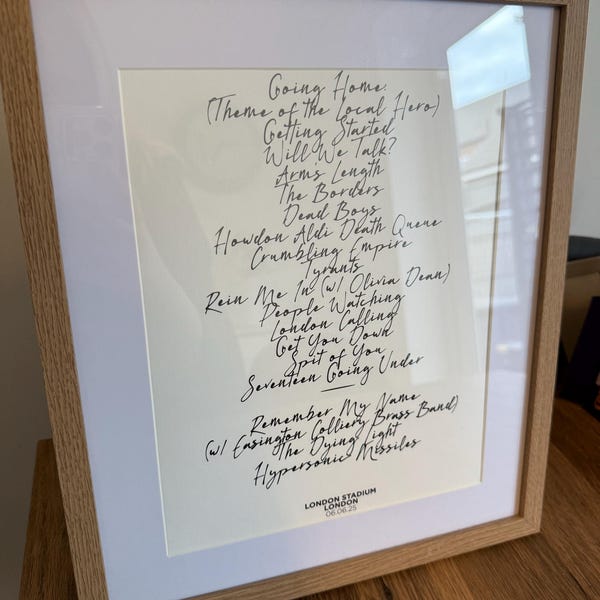 Going Home:
(Theme of the Local Hero)
Getting Started
Will We Talk?
Arms Length
The Borders
Dead Boys
Howdon Aldi Death Queue
Crumbling Empire
Tyrants
Rein Me In (w/ Olivia Dean)
People Watching
London Calling
Get You Down
Spit of You
Seventeen Going Under
Remember My Name
(w/ Easington Colliery Brass Band)
The Dying Light
Hypersonic Missiles
LONDON STADIUM
LONDON
06.06.25